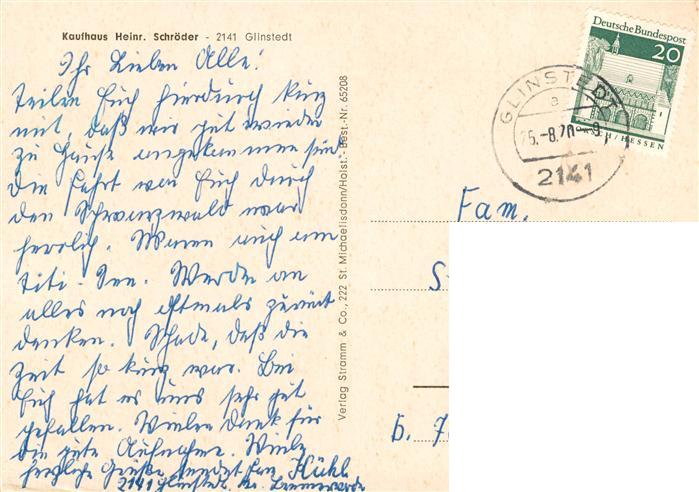 Kaufhaus Heinr. Schröder - 2141 Glinstedt
Ihr Lieben Alle!
Teilen Euch hierdurch kurz
mit, daß wir gut wieder
zu Hause angekommen sind.
Die Fahrt von Euch durch
den Schwarzwald war
herrlich. Waren auch am
Titi-See. Werde an
alles noch oftmals zurück
denken. Schade, daß die
Zeit so kurz war. Bei
Euch hat es uns sehr gut
gefallen. Vielen Dank für
die gute Aufnahme. Viele
herzliche Grüße sendet Fam. Kühl
2141 Glinstedt, Kr. Bremervörde
Verlag Stramm & Co., 222 St. Michaelisdonn/Holst. - Best.-Nr. 65208
Deutsche Bundespost
20
GLINSTEDT
a
25.-8.70
2141
/HESSEN
Fam.
S
b. 7